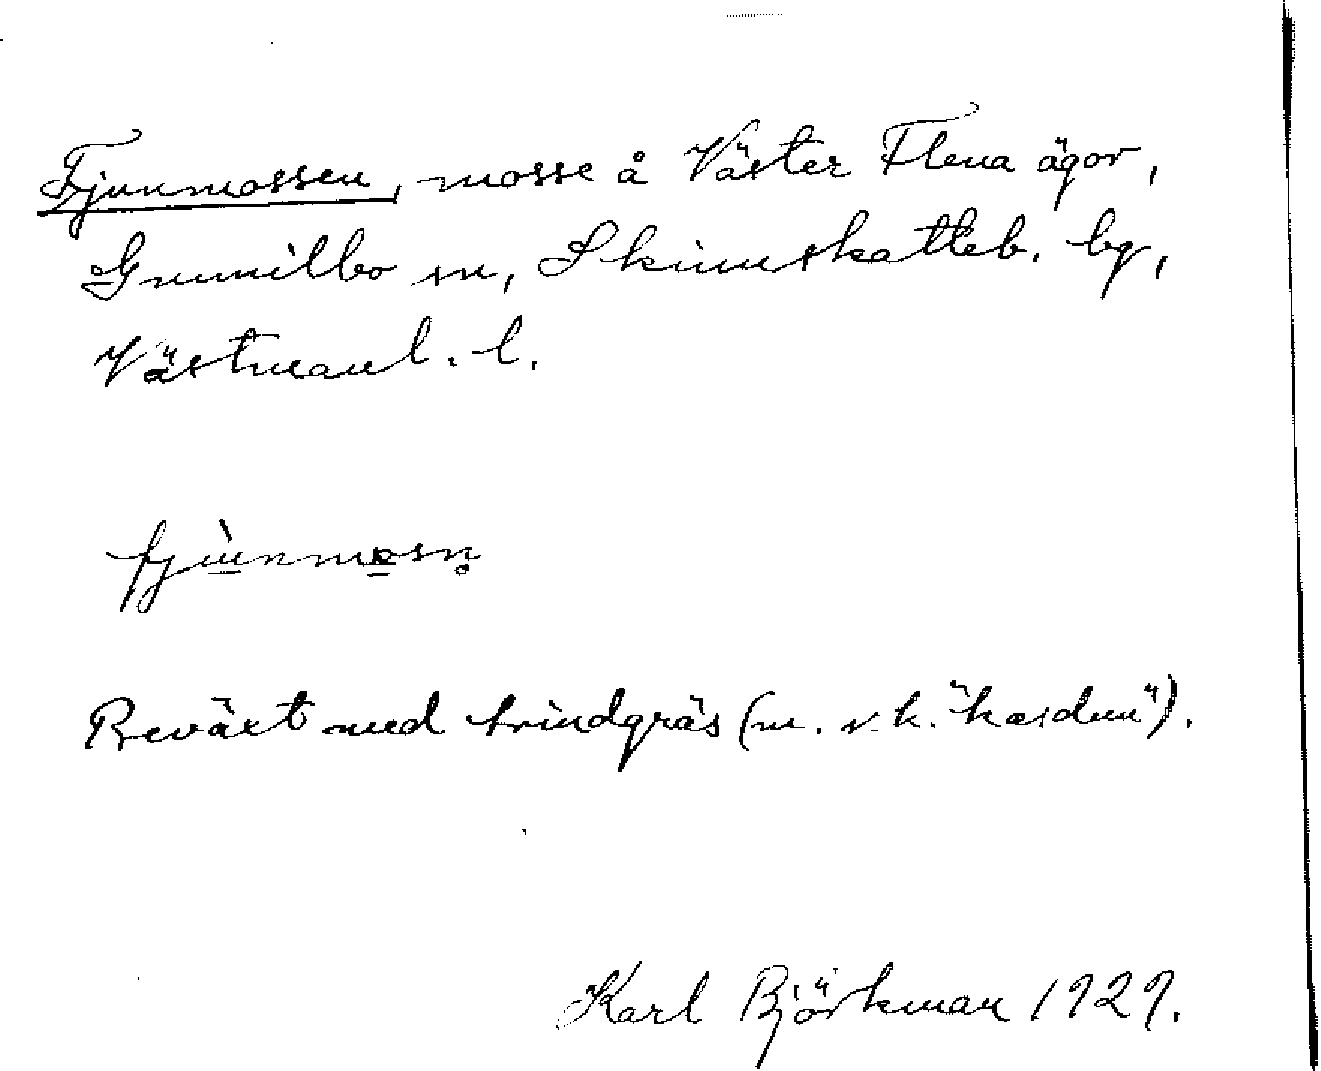 Fjunmossen, mosse å Väster Flena ägor,
Gunnilbo sn, Skinnskatteb. bg,
Västmanl. l.
fjùnmosn̥
Beväxt med trindgräs (m. v. k. "kardun").
Karl Björkman 1929.